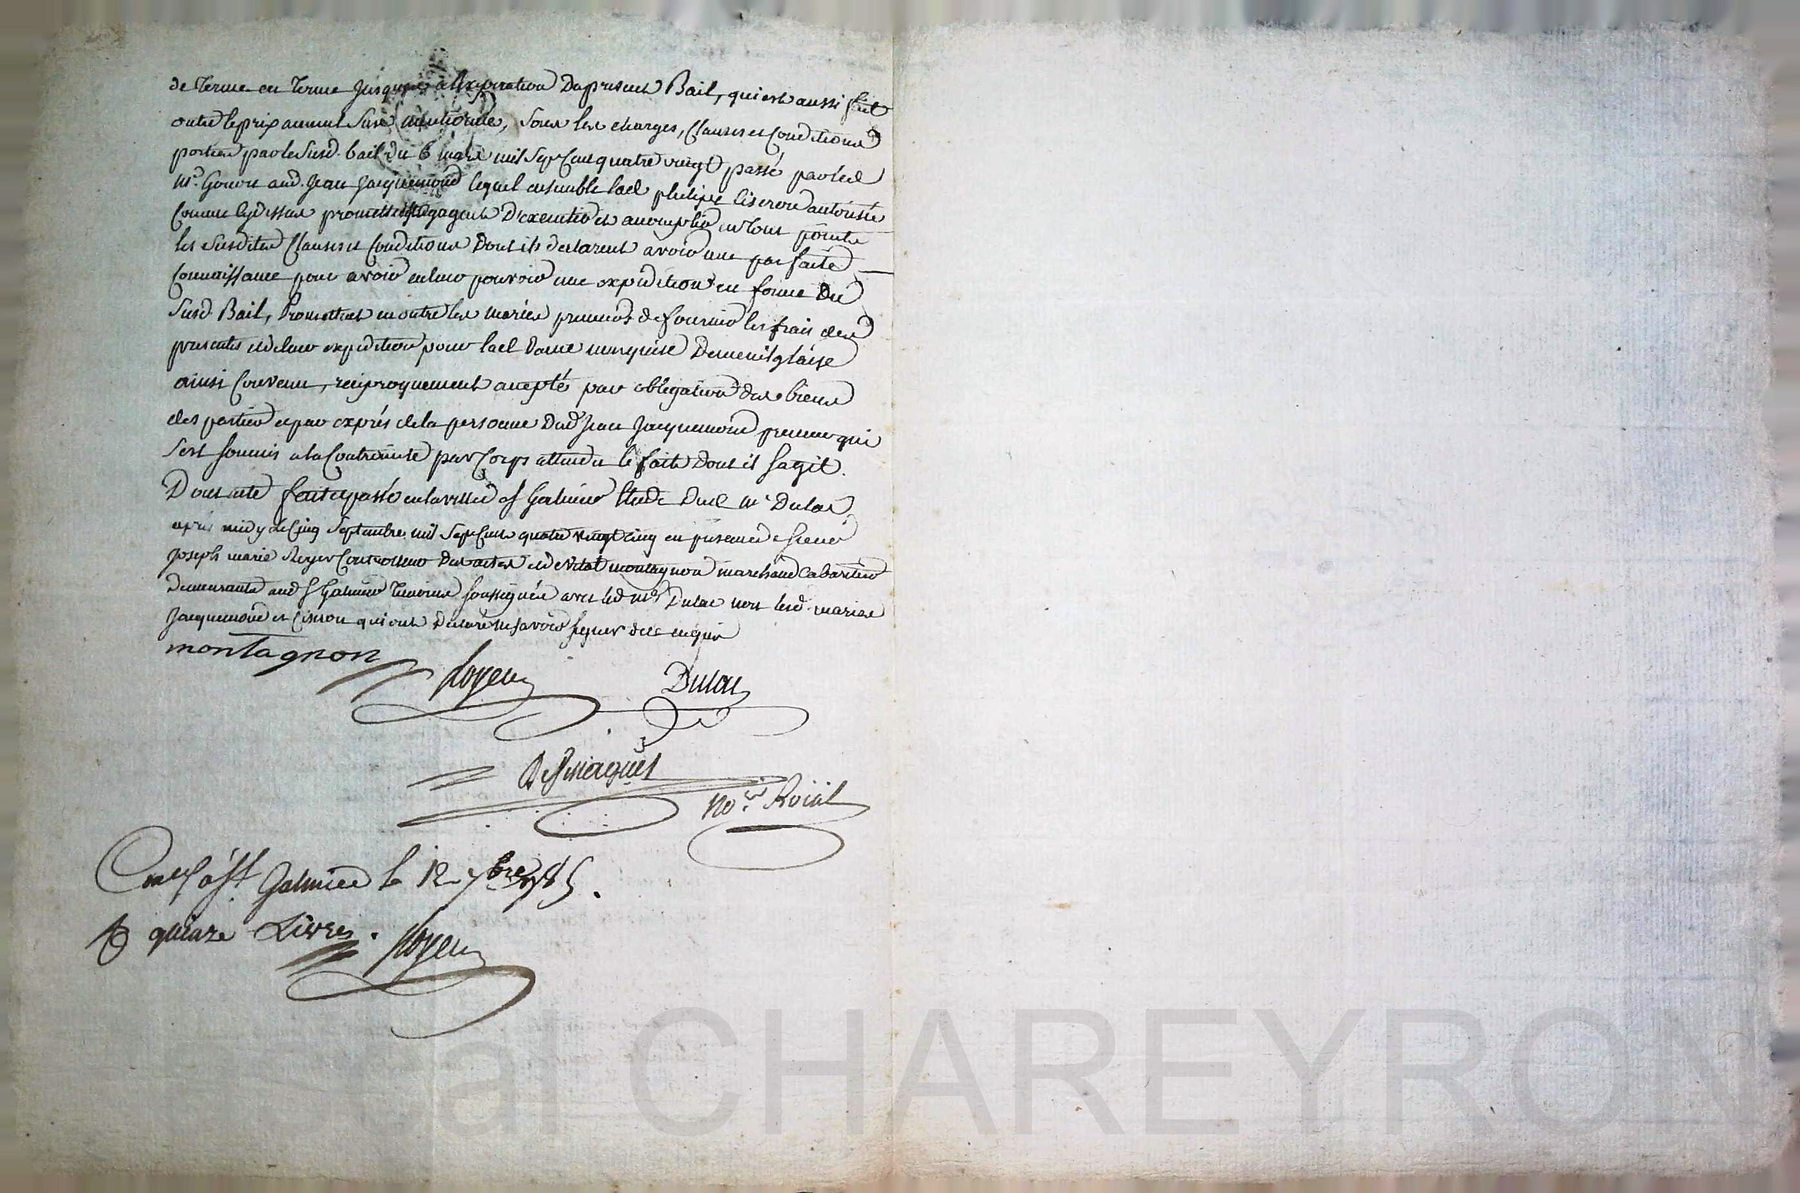 de Terme en Terme jusques a l'expiration Du present Bail, qui est aussi fait
outre le prix annuel sus mentionné, sous les charges, Clauses et Conditions
portées par le susd. bail du 6 mars mil sept Cent quatre vingt passé par led
Mr. Gonon aud. Jean Jacquemond lequel ensemble lad. philipe autorisée
Comme cy dessus promettent s'engagent D'executer et accomplir en tout point
les susdites Clauses et Conditions Dont ils declarent avoir une parfaite
Connaissance pour avoir en leur pouvoir une expedition en forme Du
susd. Bail, Promettent en outre les mariés preneurs de fournir les frais des
presentes et de leur expedition pour lad. Dame marquise Demenilglaise
ainsi Convenu, reciproquement accepté par obligation des biens
des parties et par exprés de la personne Dud. Jean Jacquemond preneur qui
s'est soumis a la Contrainte par Corps attendu le fait Dont il s'agit.
Dont acte fait et passé en la ville de st Galmier Etude Dud. Me. Dulac
après midy le Cinq Septembre mil Sept Cent quatre vingt Cinq en presence de sieur
Joseph marie Royer Controlleur Des actes et de vital montagnon marchand Cabaretier
Demeurants aud. st Galmier Temoins soussignés avec led. Mr. Dulac non lesd. mariés
Jacquemond et qui ont Declaré ne savoir signer de ce enquis
montagnon Royer Dulac
No.re Roial
Con.lé a st Galmier le 12 7bre 1785.
quinze Livres. Royer
Pascal CHAREYRON